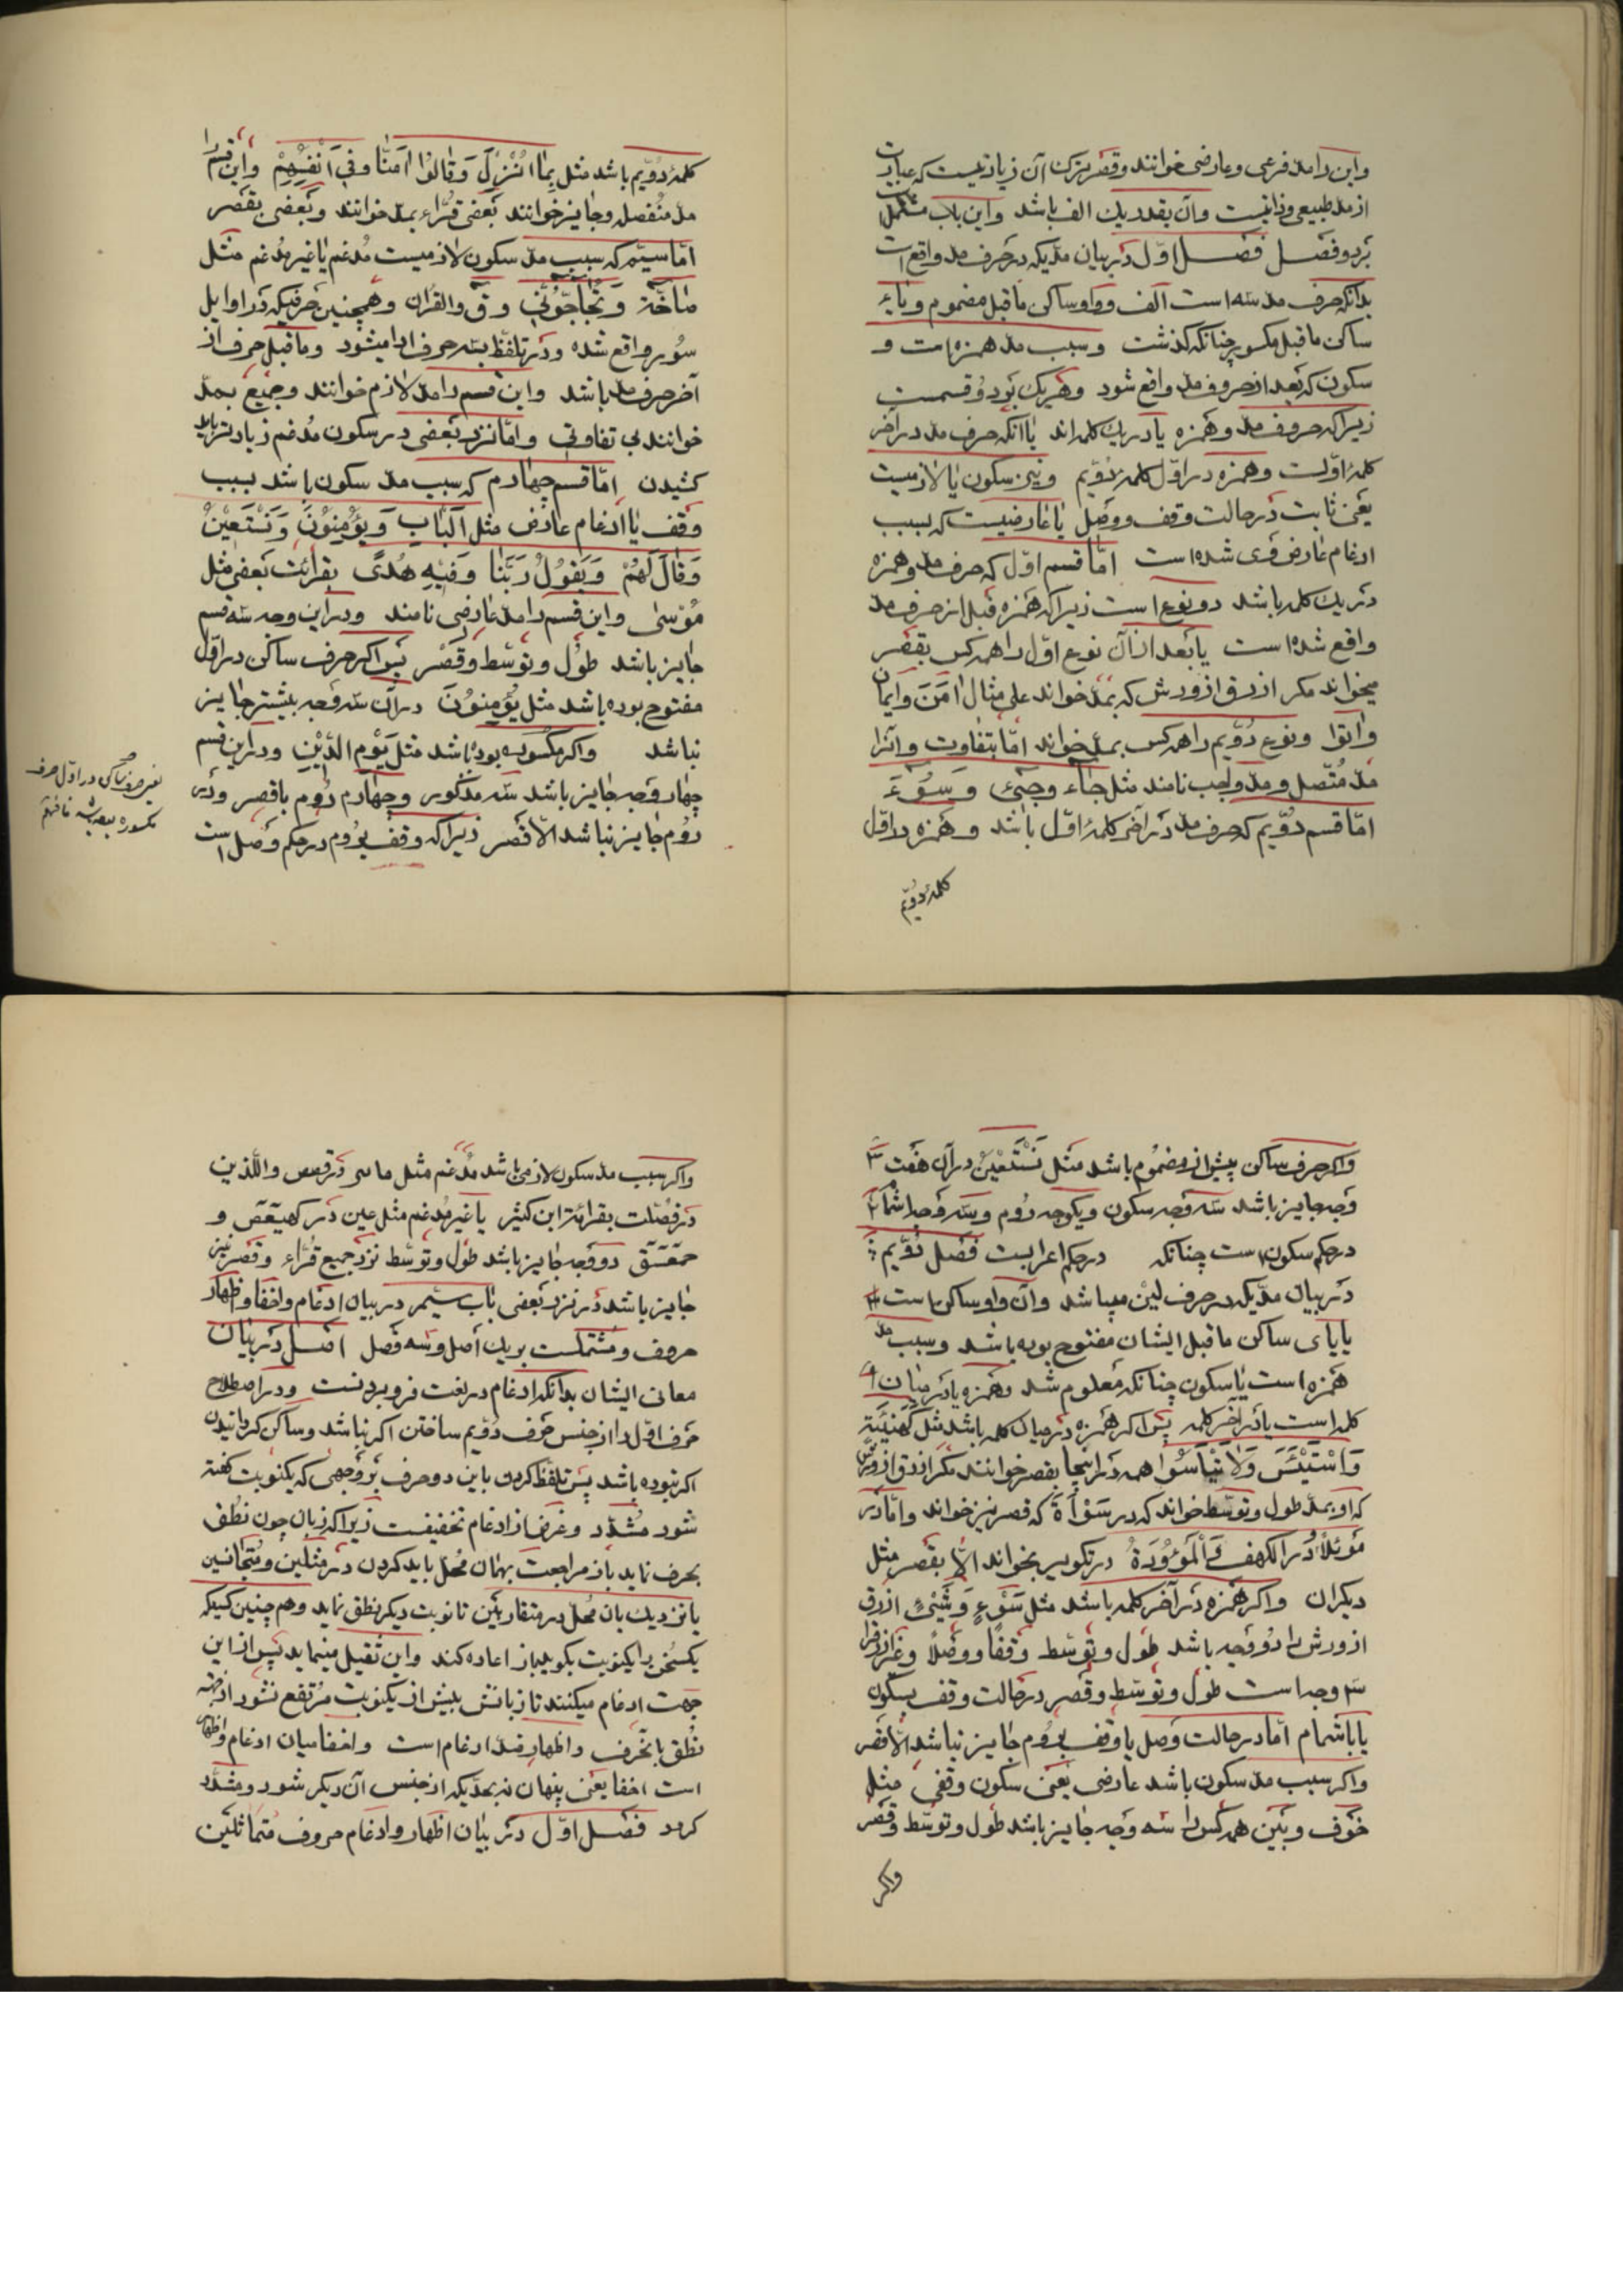 واین را مد فرعی وعارضی خوانند وقصر ترک آن زیادتیست که عبارت
از مد طبیعی وذاتیست وآن بقدر یک الف باشد واین باب مشتمل است
بر دو فصل فصل اوّل در بیان مدّیکه در حرف مد واقع است
بدانکه حرف مد سه است الف وواو ساکن ماقبل مضموم ویاء
ساکن ماقبل مکسور چنانکه گذشت وسبب مد همزه است و
سکون که بعد از حروف مد واقع شود وهر یک بر دو قسمست
زیرا که حروف مد وهمزه یا در یک کلمه‌اند یا آنکه حرف مد در آخر
کلمهٔ اوّلست وهمزه در اوّل کلمهٔ دُوّیم ونیز سکون یا لازمیست
یعنی ثابت در حالت وقف ووصل یا عارضیست که بسبب
ادغام عارض فری شده است امّا قسم اوّل که حرف مد وهمزه
در یک کلمه باشد دو نوع است زیرا که همزه قبل از حرف مد
واقع شده است یا بعد از آن نوع اوّل را همه کس بقصر
میخواند مکر ازرق از ورش که بمد خواند علی مثال اٰمَنَ وایمان
واتوا ونوع دُوّیم را همه کس بمدّ خواند امّا بتفاوت وآنرا
مد مُتّصل ومد واجب نامند مثل جاء وجیء وسُوٓءَ
امّا قسم دُوّیم که حرف مد در آخر کلمهٔ اوّل باشد وهمزه در اوّل
کلمهٔ دُوّیم
کلمهٔ دُوّیم باشد مثل بِمٰا اُنْزِلَ وَقٰالُوٓا اٰمَنّٰا وفِی اَنْفُسِهِمْ واین قسم را
مد منُفصل وجایز خوانند بعضی قُرّاء بمد خوانند وبعضی بقصر
امّا سیّم که سبب مدّ سکون لازمیست مُدغم یا غیر مُدغم مثل
صٰاخّة وَتُحٰاجّوُنّی وق والقران وهمچنین حرفیکه در اوایل
سُور واقع شده ودر تلفّظ بسه حرف ادا میشود وماقبل حرف از
آخر حرف مد باشد واین قسم را مد لازم خوانند وجمیع بمدّ
خوانند بی تفاوتی وامّا نزد بعضی در سکون مُدغم زیادتر باید
کشیدن امّا قسم چهارم که سبب مد سکون باشد بسبب
وقف یا ادغام عارض مثل اَلْبٰاب وَیؤُْمِنوُنَ وَنَسْتَعیٖنُ
وَقٰالَ لَهُمْ وَیَقوُلُ رَبَّنٰا وَفیٖهِ هُدًی بقرائت بعضی مثل
موُسیٰ واین قسم را مد عارضی نامند ودر این وجه سه قسم
جایز باشد طوُل وتوسّط وقَصْر پس اکر حرف ساکن در اوّل
مفتوح بوده باشد مثل یؤُْمِنوُنَ در آن سه وجه بیشتر جایز
نباشد واکر مکسوره بوده باشد مثل یَوْمِ الدّیٖنِ ودر این قسم
چهار وجه جایز باشد سه مذکور وچهارم رُوم باقصر ودر
رُوم جایز نباشد الّا قصر زیرا که وقف برُوم در حکم وَصل است
واکر حرف ساکن پیش از مضموُم باشد مثل نَسْتَعیٖنُ در آن هفت
وجه جایز باشد سه وجه سکون ویکوجه رُوم وسه وجه اشمام
در حکم سکون است چنانکه در حکم اعرابست فصل دُوّیم
در بیان مدّیکه در حرف لین میباشد وآن واو ساکن است
یا یای ساکن ماقبل ایشان مفتوح بوده باشد وسبب مد
همزه است یا سکون چنانکه معلوم شد وهمزه یا در میان
کلمه است یا در آخر کلمه پس اکر همزه در میان کلمه باشد مثل کَهَیْئَةِ
وَاسْتَیْئَسَ وَلٰا تَیْأَسُوا همه در اینجا بقصر خوانند مکر ازرق از ورش
که او بمدّ طول وتوسّط خواند که در سَوْأَةَ که قصر نیز خواند وامّا در
مَوْئِلاً در الکهف وَالْمَوْؤُدَةُ در تکویر نخواند الّا بقصر مثل
دیکران واکر همزه در آخر کلمه باشد مثل سَوْءٍ وَشَیْءٍ ازرق
از ورش را دُو وَجه باشد طول وتوسّط وقفاً ووصلاً وغیر ازرق را
سه وجه است طول وتوسّط وقصر در حالت وقف بسکون
یا باشمام امّا در حالت وَصل یا وقف برُوم جایز نباشد الّا قصر
واکر سبب مد سکون باشد عارضی یعنی سکون وقفی مثل
خَوْف وبَیْن همه کس را سه وَجه جایز باشد طول وتوسّط وقصر
واکر
واکر سبب مد سکون لازمی باشد مُدغم مثل هاتین در قصص واللّذین
در فصّلت بقرائت ابن کثیر یا غیر مُدغم مثل عین در کهیعص و
حمعسق دو وجه جایز باشد طول وتوسّط نزد جمیع قُرّاء وقصر نیز
جایز باشد در نزد بعضی باب سیّم در بیان ادغام واخفا واظهار
حروف ومشتملست بر یک اصل وسه فصل اصل در بیان
معانی ایشان بدانکه ادغام در لغت فرو بردنست ودر اصطلاح
حرف اوّل را از جنس حرف دُوّیم ساختن اکر نباشد وساکن کردانیدن
اکر نبوده باشد پس تلفّظ کردن باین دو حرف بر وجهی که یکنوبت کفته
شود مُشدّد وغرض از ادغام تخفیفست زیرا که زبان چون نطق
بحرف نماید باز مراجعت بهمان محلّ باید کردن در مثلین ومُتجانسین
یا نزدیک بان محلّ در متقاربین تا نوبت دیکر نطق نماید وهمچنین کسیکه
یکسُخن را یکنوبت بکوید باز اعاده کند واین ثقیل مینماید پس از این
جهت ادغام میکنند تا زبانش بیش از یکنوبت مُرتفع نشود از جهة
نُطق بانحرف واظهار ضدّ ادغام است واخفا میان ادغام واظهار
است اخفا یعنی پنهان نه بحدّیکه از جنس آن دیکر شود ومشدّد
کردد فصل اوّل در بیان اظهار وادغام حروف مُتماثلین